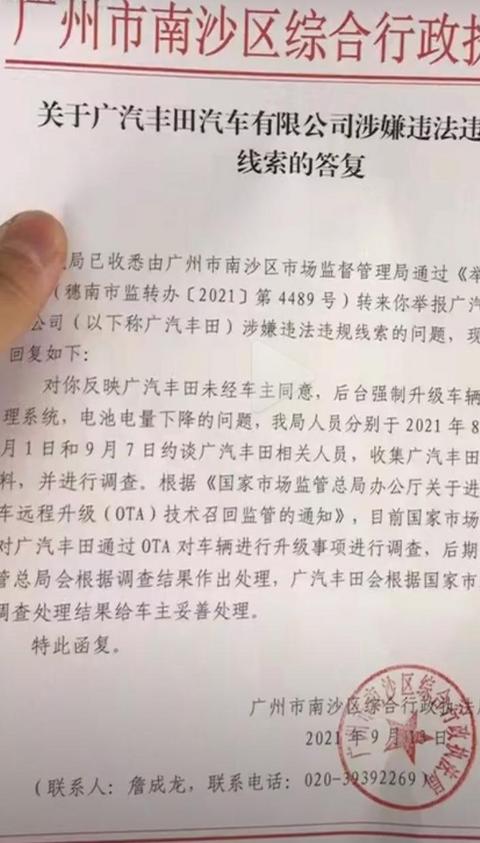 广州市南沙区综合行政执
关于广汽丰田汽车有限公司涉嫌违法违
线索的答复
局已收悉由广州市南沙区市场监督管理局通过《举
（穗南市监转办〔2021〕第 4489 号）转来你举报广汽
公司（以下称广汽丰田）涉嫌违法违规线索的问题，现
回复如下：
对你反映广汽丰田未经车主同意，后台强制升级车辆
理系统，电池电量下降的问题，我局人员分别于 2021 年 8
月 1 日和 9 月 7 日约谈广汽丰田相关人员，收集广汽丰田
料，并进行调查。根据《国家市场监管总局办公厅关于进
车远程升级（OTA）技术召回监管的通知》，目前国家市场
对广汽丰田通过 OTA 对车辆进行升级事项进行调查，后期
管总局会根据调查结果作出处理，广汽丰田会根据国家市
调查处理结果给车主妥善处理。
特此函复。
广州市南沙区综合行政执法局
2021 年 9 月 13 日
广州市南沙区综合行政执法局
（联系人：詹成龙，联系电话：020-39392269）